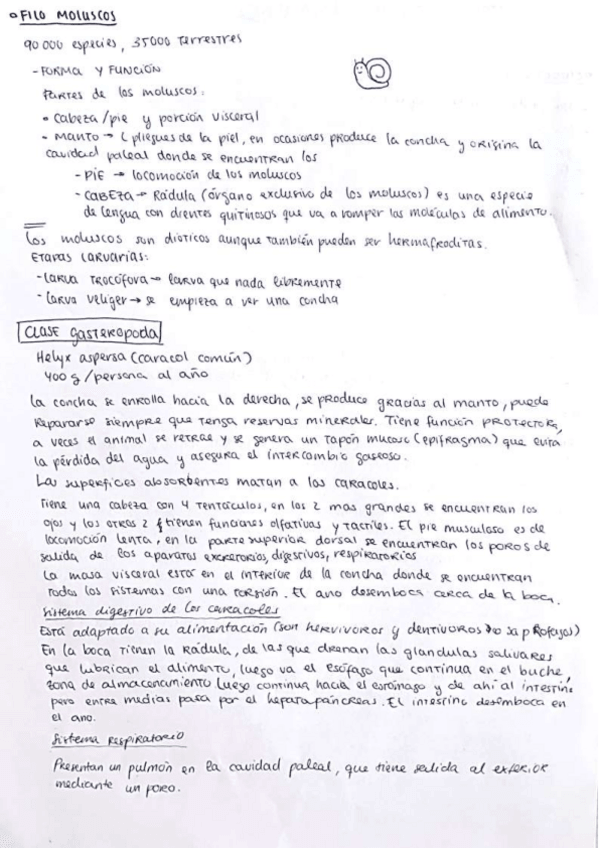 ○ FILO MOLUSCOS
90 000 especies, 35000 terrestres
- FORMA Y FUNCIÓN
Partes de los moluscos:
• Cabeza/pie y porción visceral
• Manto → (pliegues de la piel, en ocasiones produce la concha y origina la
cavidad paleal donde se encuentran los
- PIE → locomoción de los moluscos
- CABEZA → Rádula (órgano exclusivo de los moluscos) es una especie
de lengua con dientes quitinosos que va a romper las moléculas de alimento.
Los moluscos son dioticos aunque también pueden ser hermafroditas.
Etapas larvarias:
- Larva trocófora → larva que nada libremente
- Larva veliger → se empieza a ver una concha
CLASE gasteropoda
Helyx aspersa (caracol común)
400 g/persona al año
La concha se enrolla hacia la derecha, se produce gracias al manto, puede
repararse siempre que tenga reservas minerales. Tiene función protectora,
a veces el animal se retrae y se genera un tapón mucoso (epifragma) que evita
la pérdida del agua y asegura el intercambio gaseoso.
Las superfices absorbentes matan a los caracoles.
Tiene una cabeza con 4 tentáculos, en los 2 mas grandes se encuentran los
ojos y los otros 2 tienen funciones olfativas y tactiles. El pie musculoso es de
locomoción lenta, en la parte superior dorsal se encuentran los poros de
salida de los aparatos excretorios, digestivos, respiratorios
La masa visceral está en el interior de la concha donde se encuentran
todos los sistemas con una torsión. El ano desemboca cerca de la boca.
Sistema digestivo de los caracoles
Está adaptado a su alimentación (son hervivoros y dentivoros
En la boca tienen la rádula, de las que drenan las glandulas salivares
que lubrican el alimento, luego va el esófago que continua en el buche,
zona de almacenamiento luego continua hacia el estómago y de ahí al intestino
pero entre medias pasa por el hepatopáncreas. El intestino desemboca en
el ano.
Sistema respiratorio
Presentan un pulmón en la cavidad paleal, que tiene salida al exterior
mediante un poro.